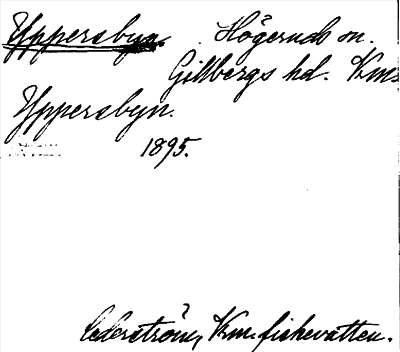 Yppersbyn. Högeruds sn.
Gillbergs hd. Vrml
Yppersbyn.
1895.
Cederström, Vrm. fiskevatten.